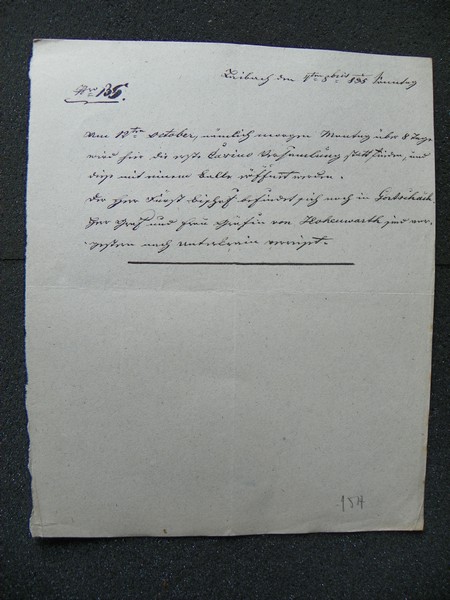 Laibach den 4ten 8bris 135 Sonntag
Nr. 136.
Am 12ten October, nämlich morgen Montag über 8 Tage
wird hier die erste Casino Versamlung statt finden, und
dieß mit einem Balle eröffnet werden.
Der Herr Fürst Bischof befindet sich noch in Görtschach.
Herr Graf und Frau Gräfin von Hohenwarth sind vor-
gestern nach Unterkrain verreist.
154